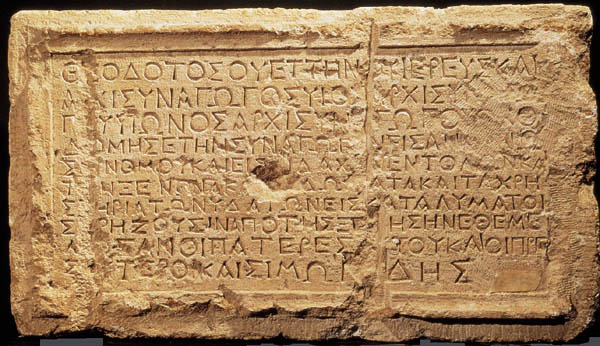 ΟΔΟΤΟΣ ΟΥΕΤΤΗΝ Υ ΙΕΡΕΥΣ ΚΑΙ
ΧΙΣΥΝΑΓΩΓΟΣ ΥΙΟ ΑΡΧΙΣΥ
Υ ΥΙΩΝΟΣ ΑΡΧΙΣ ΓΩΓΟ
ΟΜΗΣΕ ΤΗΝ ΣΥΝΑΓΩΓ Ν ΕΙΣ ΑΝ
Ν ΝΟΜΟΥ ΚΑΙ ΕΙΣ ΔΑΧ ΕΝΤΟΛΩΝ ΚΑ
ΞΕΝΩΝΑ ΚΑ ΔΩ ΑΤΑ ΚΑΙ ΤΑ ΧΡΗ
ΗΡΙΑ ΤΩΝ ΥΔΑΤΩΝ ΕΙΣ ΚΑΤΑΛΥΜΑ ΤΟΙ
ΧΡΗΖΟΥΣΙΝ ΑΠΟ ΤΗΣ ΞΕ ΗΣ ΗΝ ΕΘΕΜΕ
ΣΑΝ ΟΙ ΠΑΤΕΡΕΣ ΤΟΥ ΚΑΙ ΟΙ ΠΡΕ
ΤΕΡΟΙ ΚΑΙ ΣΙΜΩΝ ΔΗΣ